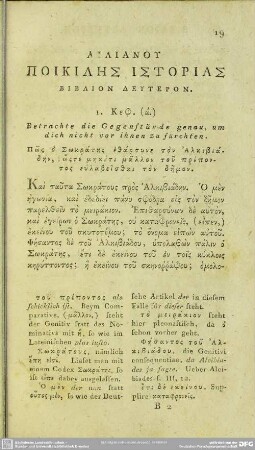 19
ΑΙΛΙΑΝΟΥ
ΠΟΙΚΙΛΗΣ ΙΣΤΟΡΙΑΣ
ΒΙΒΛΙΟΝ ΔΕΥΤΕΡΟΝ.
1. Κεφ. (ά.)
Betrachte die Gegenstände genau, um
dich nicht vor ihnen zu fürchten.
Πῶς ὁ Σωκράτης ἐθάρσυνε τὸν Ἀλκιβιά-
δην, ὥςτε μηκέτι μᾶλλον τοῦ πρέπον-
τος εὐλαβεῖσθαι τὸν δῆμον.
Καὶ ταῦτα Σωκράτους πρὸς Ἀλκιβιάδην. Ὁ μὲν
ἠγωνία, καὶ ἐδεδίει πάνυ σφόδρα εἰς τὸν δῆμον
παρελθεῖν τὸ μειράκιον. Ἐπιθαρσύνων δὲ αὐτόν,
καὶ ἐγείρων ὁ Σωκράτης, οὐ καταφρονεῖς, (εἶπεν,)
ἐκείνου τοῦ σκυτοτόμου; τὸ ὄνομα εἰπὼν αὐτοῦ.
Φήσαντος δὲ τοῦ Ἀλκιβιάδου, ὑπολαβὼν πάλιν ὁ
Σωκράτης, ἔτι δὲ ἐκείνου τοῦ ἐν τοῖς κύκλοις
κηρύττοντος; ἢ ἐκείνου τοῦ σκηνοῤῥάφου; ὁμολο-
τοῦ πρέποντος als
schicklich ist. Beym Com-
parative, (μᾶλλον,) steht
der Genitiv statt des No-
minativ mit ἢ, so wie im
Lateinischen plus iusto.
Σωκράτους, nämlich
ἔπη sis. Liefet man mit
einem Codex Σωκράτης, so
ist εἶπε dabey ausgelassen.
Ὁ μὲν der nun statt
οὗτος μέν, so wie der Deut-
sche Artikel der in diesem
Falle für dieser steht.
τὸ μειράκιον steht
hier pleonastisch, da ὁ
schon vorher geht.
Φήσαντος τοῦ Ἀλ-
κιβιάδου, die Genitivi
consequentiae, da Alcibia-
des ja sagte. Ueber Alci-
biades s. III, 12.
ἔτι δὲ ἐκείνου. Sup-
plire καταφρονεῖς.
B 2